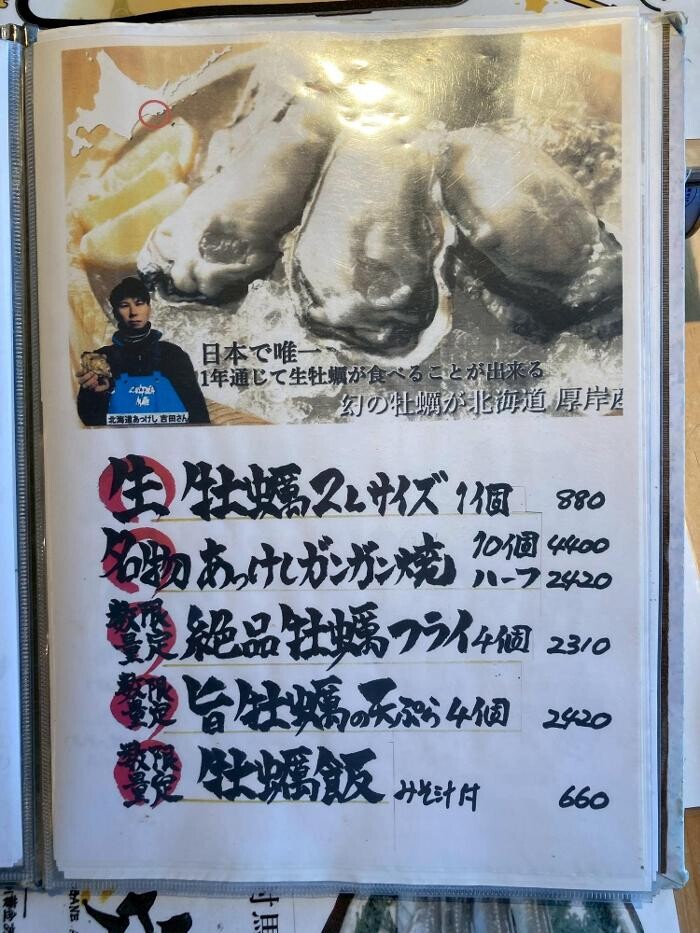 日本で唯一
1年通じて生牡蠣が食べることが出来る
幻の牡蠣が北海道 厚岸産
北海道あっけし 吉田さん
生 牡蠣2Lサイズ 1個 880
名物 あっけしガンガン焼 10個 4400
ハーフ 2420
数量限定 絶品牡蠣フライ 4個 2310
数量限定 旨牡蠣の天ぷら 4個 2420
数量限定 牡蠣飯 みそ汁付 660